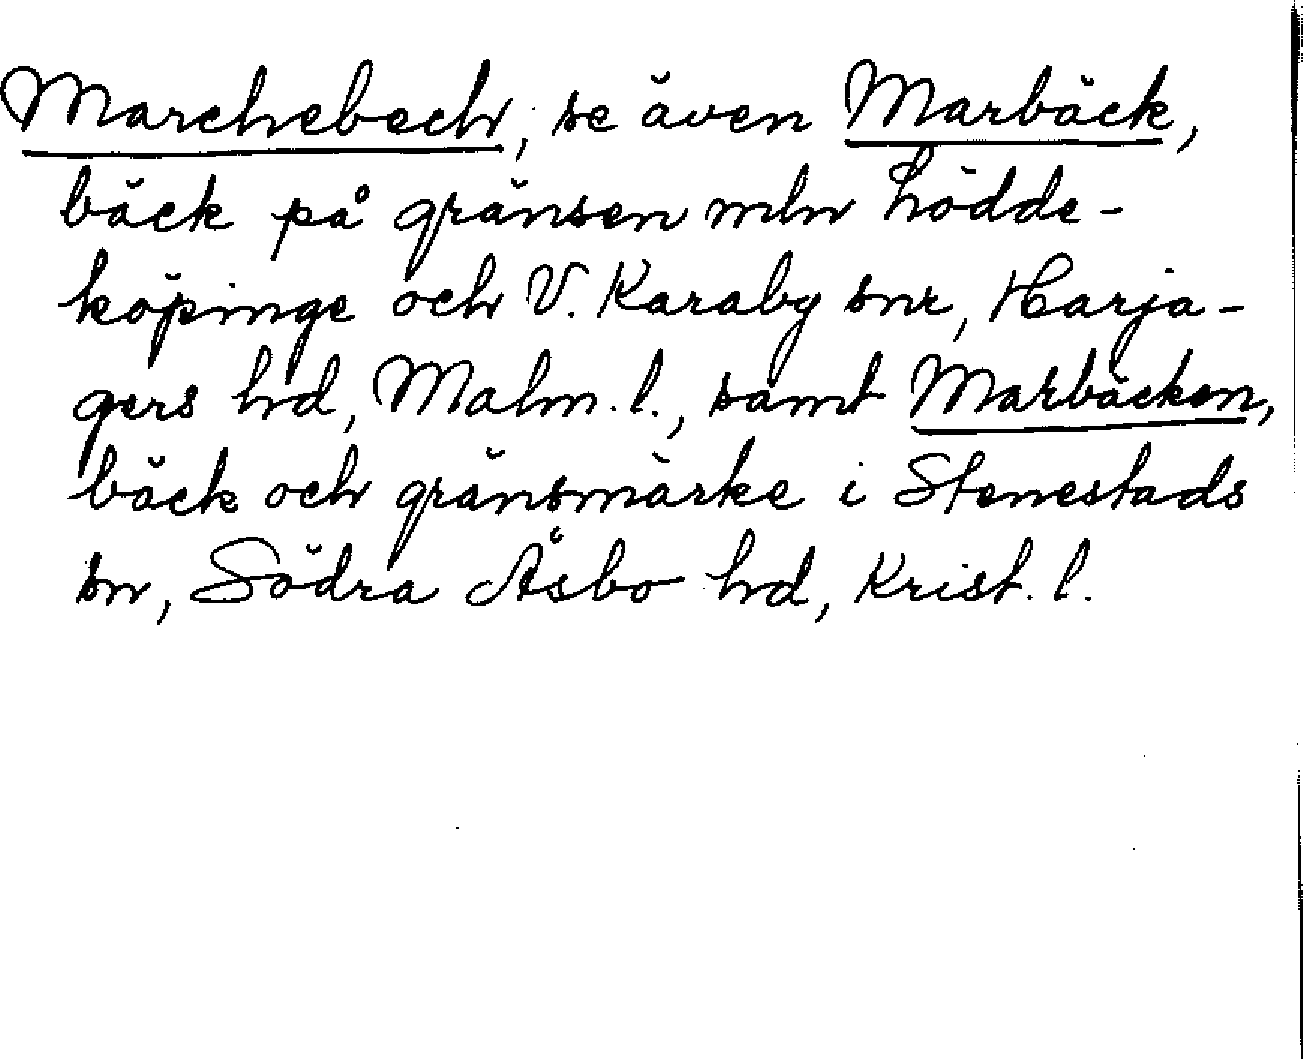 Marchebech, se även Marbäck,
bäck på gränsen mln Lödde-
köpinge och V. Karaby snr, Harja-
gers hd, Malm. l., samt Marbäcken,
bäck och gränsmärke i Stenestads
sn, Södra Åsbo hd, Krist. l.